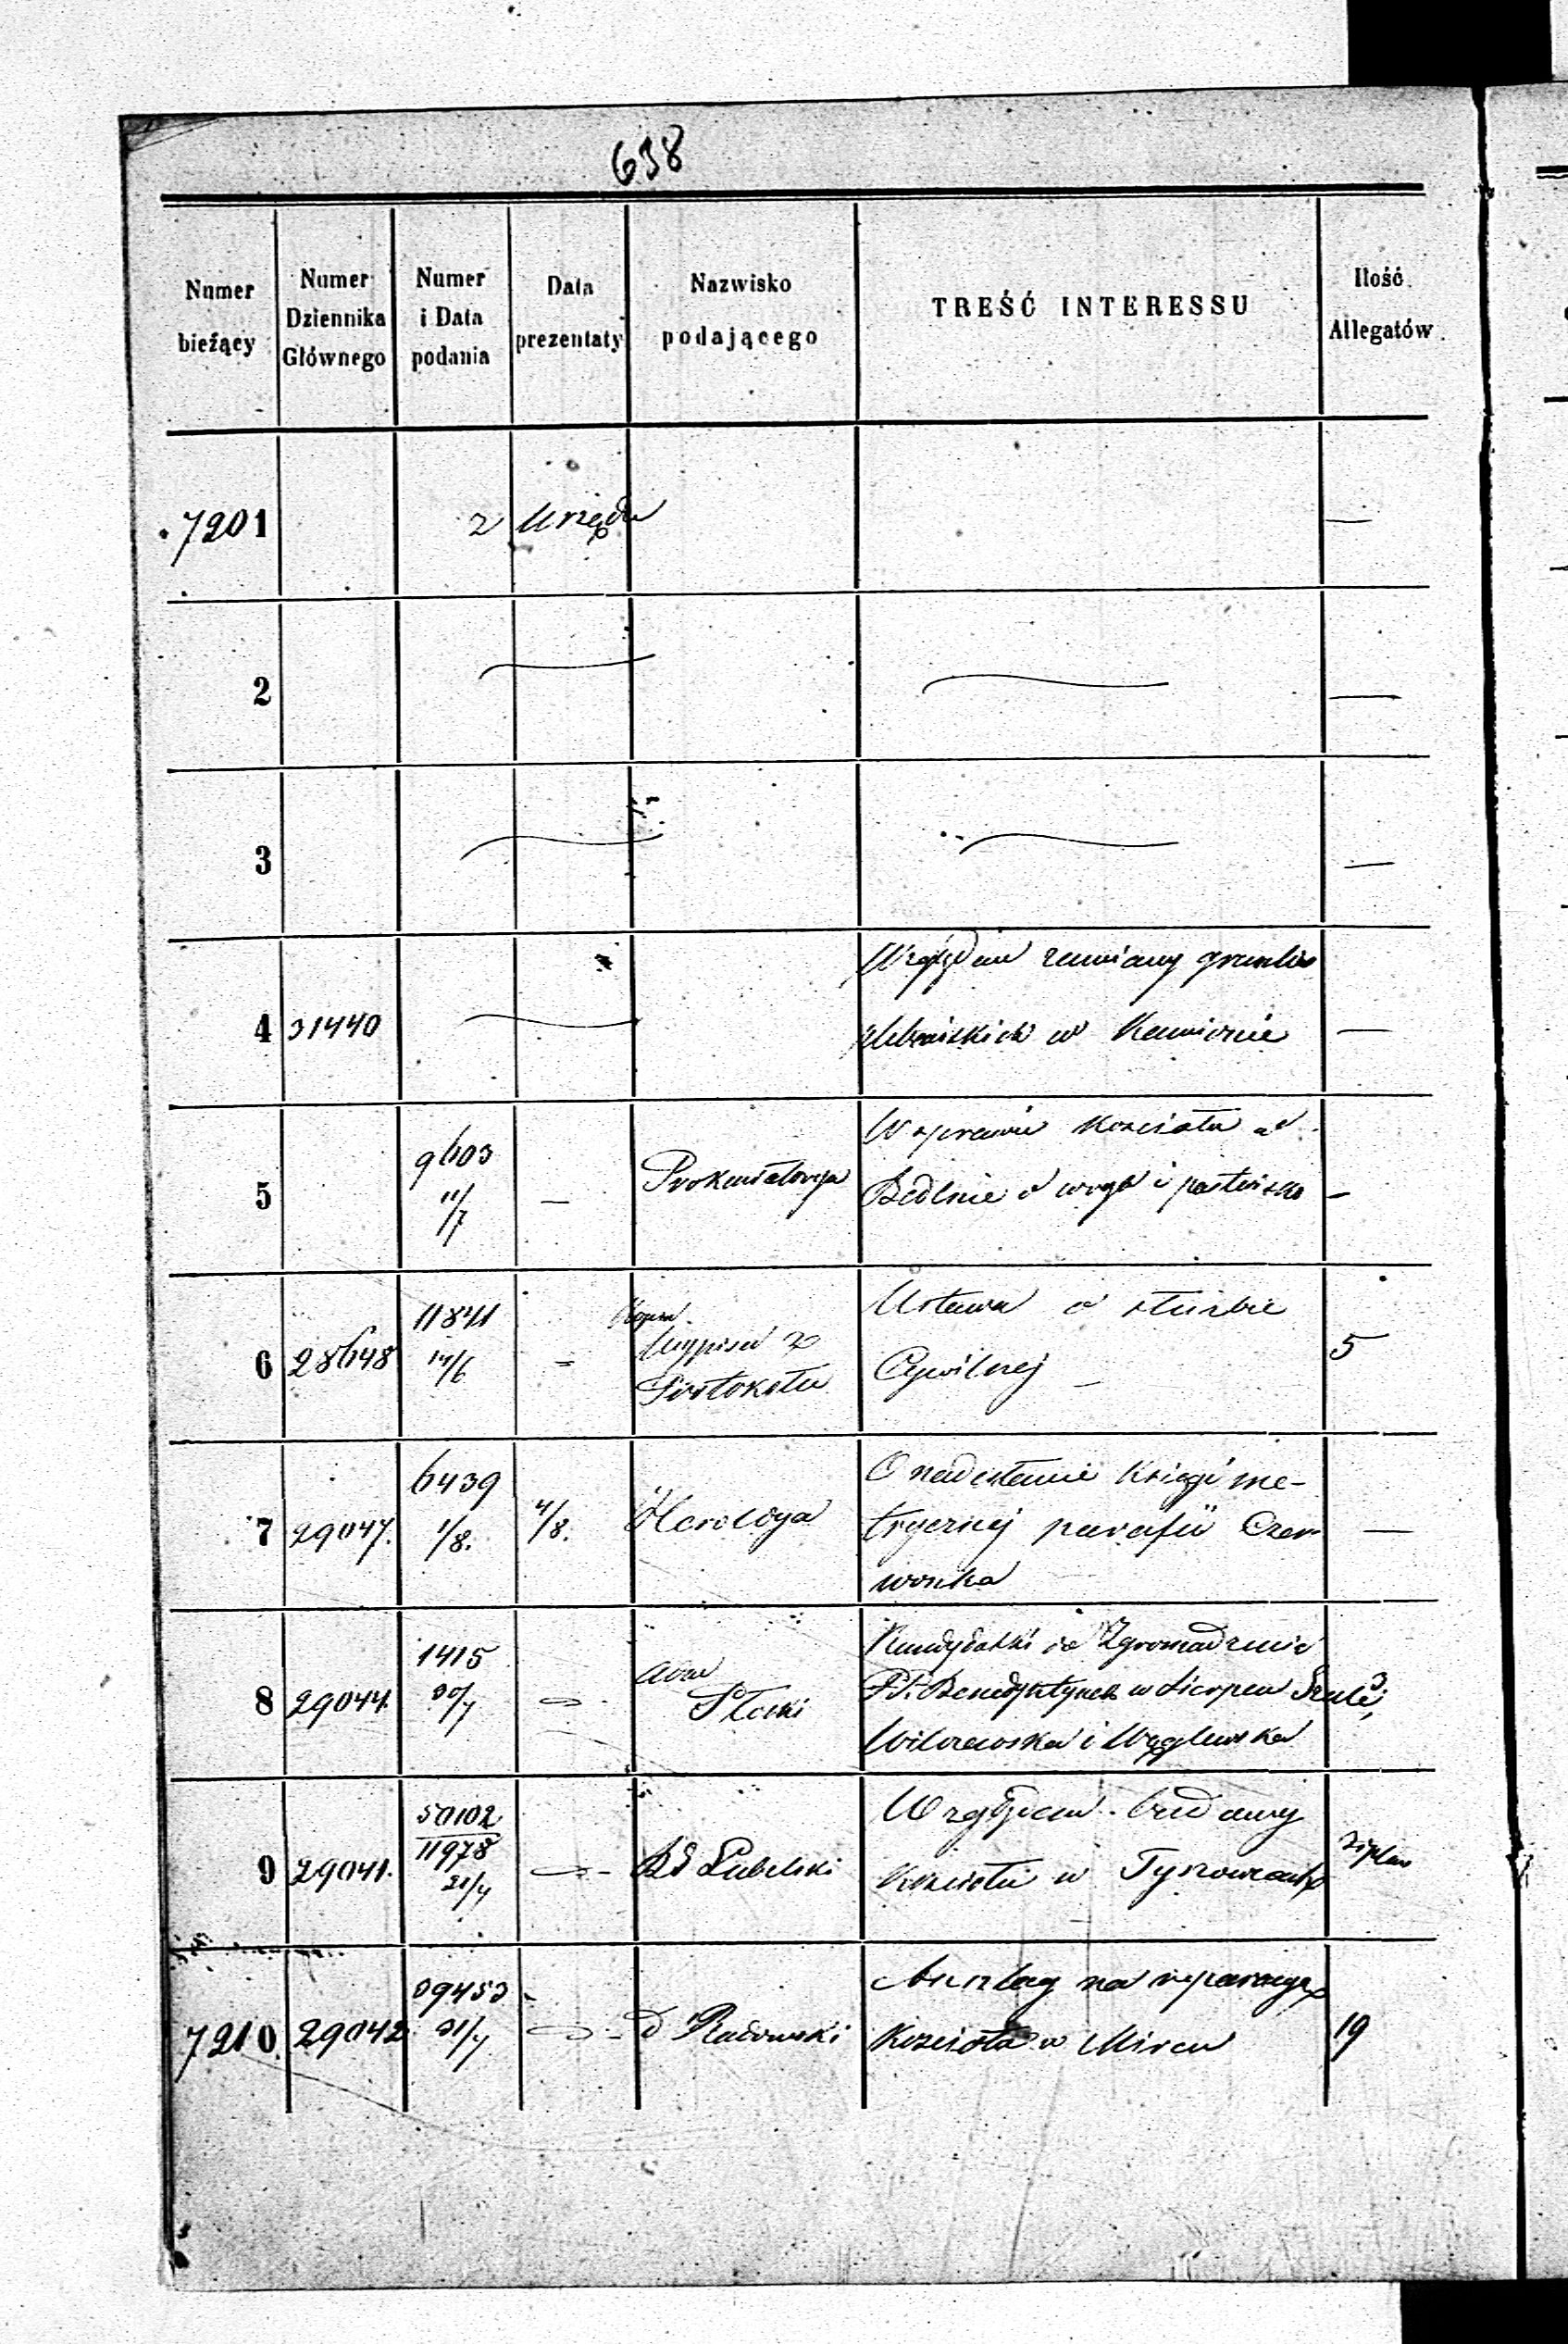 638
Numer bieżący
Numer Dziennika Głównego
Numer i Data podania
Data prezentaty
Nazwisko podającego
TREŚĆ INTERESSU
Ilość Allegatów
7201 z Urzędu —
2 —
3 —
4 31440 Względem zamiany gruntów
plebańskich w Kamionie —
5 9603 11/7 — Prokuratorya W sprawie Kościoła w
Bedlnie o wrąb i pastwisko —
6 28648 11841 14/6 Kopia
Wypisu z
Protokółu
Ustawa o służbie
Cywilnej — 5
7 29047. 6439 1/8. 4/8. Heroldya O nadesłanie Księgi me-
trycznej parafii Czer-
wonka —
8 29044. 1415 30/7 Adm
Płocki
Kandydatki do Zgromadzenia
PP. Benedyktynek w Sierpcu
Wilczewska i Węglewska
9 29041. 50102
11978
21/7
Rd Lubelski
Względem budowy
Kościoła w Tyszowcach
7210. 29042 39453 31/7 d Radomski Anszlag na reparacyę
Kościoła w Mircu 19